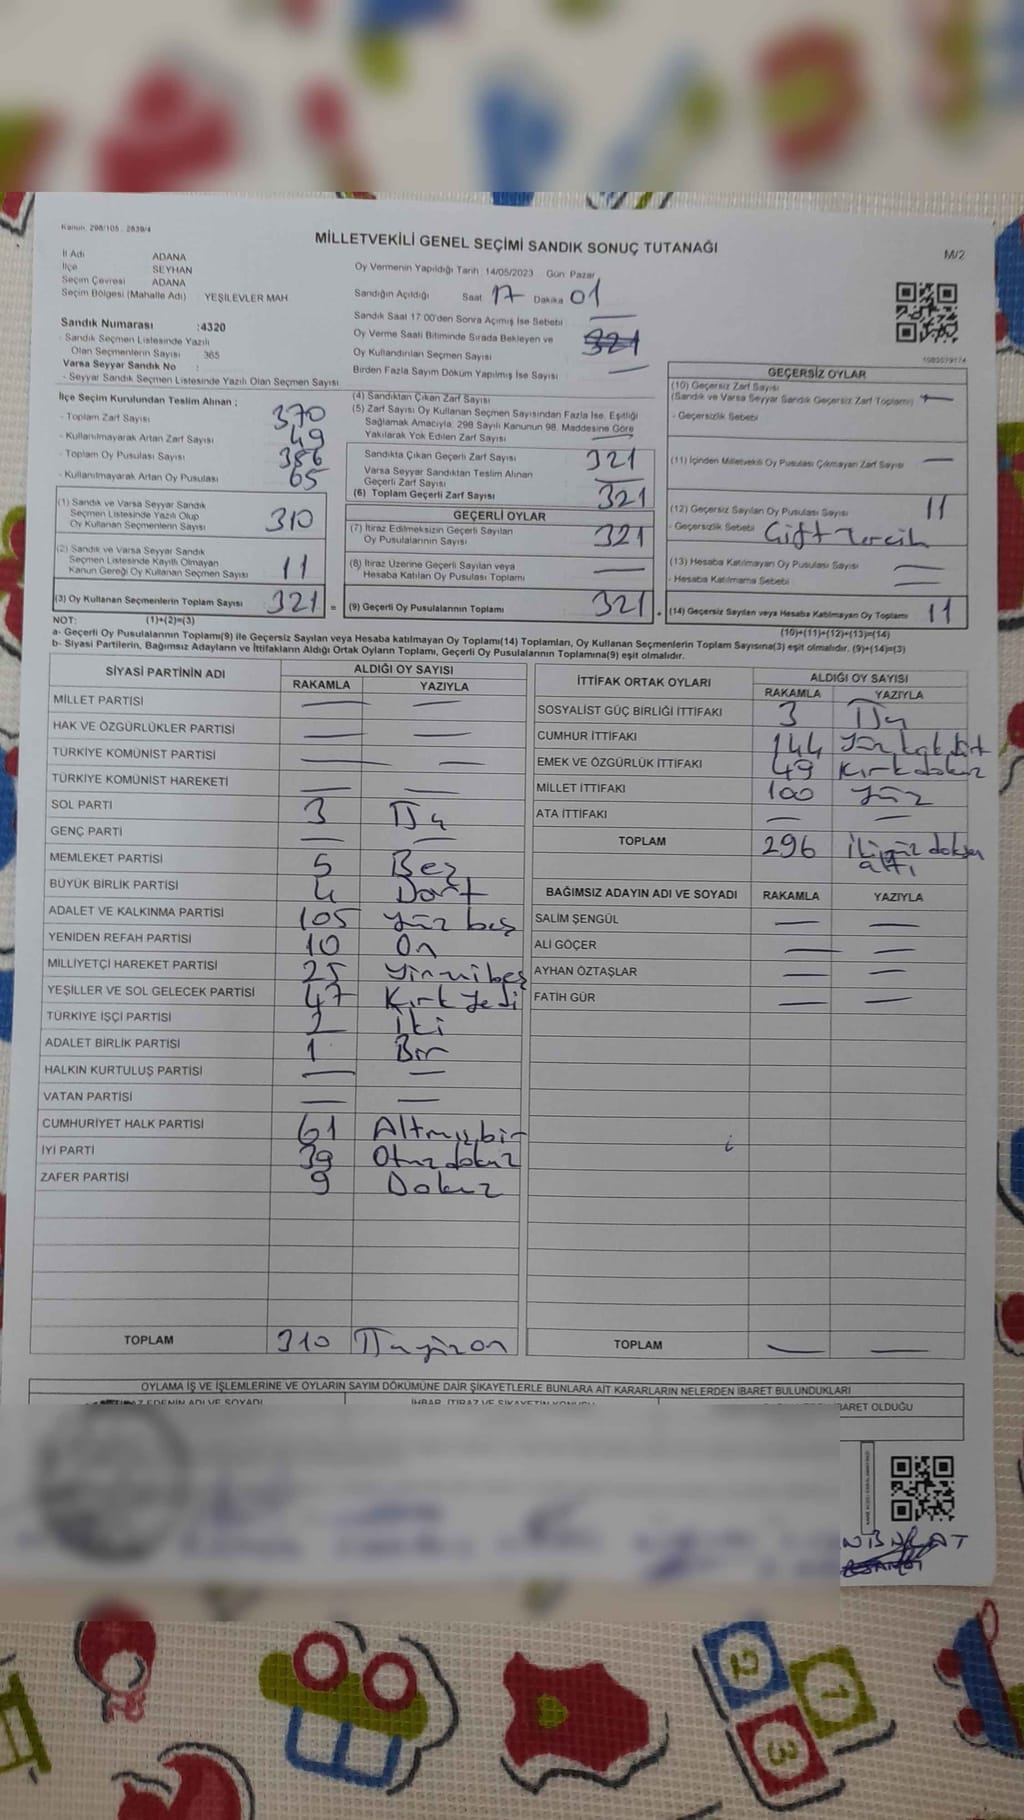 Kanun: 298/105 , 2839/4
MİLLETVEKİLİ GENEL SEÇİMİ SANDIK SONUÇ TUTANAĞI
M/2
İl Adı ADANA
İlçe SEYHAN
Seçim Çevresi ADANA
Seçim Bölgesi (Mahalle Adı) YEŞİLEVLER MAH.
Oy Vermenin Yapıldığı Tarih: 14/05/2023 Gün: Pazar
Sandığın Açıldığı Saat 17 Dakika 01
Sandık Saat 17:00'den Sonra Açılmış İse Sebebi
Oy Verme Saati Bitiminde Sırada Bekleyen ve
Oy Kullandırılan Seçmen Sayısı
Birden Fazla Sayım Döküm Yapılmış İse Sayısı
Sandık Numarası :4320
- Sandık Seçmen Listesinde Yazılı
Olan Seçmenlerin Sayısı 365
Varsa Seyyar Sandık No :
- Seyyar Sandık Seçmen Listesinde Yazılı Olan Seçmen Sayısı
İlçe Seçim Kurulundan Teslim Alınan ;
- Toplam Zarf Sayısı 370
- Kullanılmayarak Artan Zarf Sayısı 49
- Toplam Oy Pusulası Sayısı 386
- Kullanılmayarak Artan Oy Pusulası 65
(1) Sandık ve Varsa Seyyar Sandık
Seçmen Listesinde Yazılı Olup
Oy Kullanan Seçmenlerin Sayısı 310
(2) Sandık ve Varsa Seyyar Sandık
Seçmen Listesinde Kayıtlı Olmayan
Kanun Gereği Oy Kullanan Seçmen Sayısı 11
(3) Oy Kullanan Seçmenlerin Toplam Sayısı 321 =
(4) Sandıktan Çıkan Zarf Sayısı
(5) Zarf Sayısı Oy Kullanan Seçmen Sayısından Fazla İse, Eşitliği
Sağlamak Amacıyla, 298 Sayılı Kanunun 98. Maddesine Göre
Yakılarak Yok Edilen Zarf Sayısı
Sandıkta Çıkan Geçerli Zarf Sayısı 321
Varsa Seyyar Sandıktan Teslim Alınan
Geçerli Zarf Sayısı
(6) Toplam Geçerli Zarf Sayısı 321
GEÇERLİ OYLAR
(7) İtiraz Edilmeksizin Geçerli Sayılan
Oy Pusulalarının Sayısı 321
(8) İtiraz Üzerine Geçerli Sayılan veya
Hesaba Katılan Oy Pusulası Toplamı
(9) Geçerli Oy Pusulalarının Toplamı 321
GEÇERSİZ OYLAR
(10) Geçersiz Zarf Sayısı
(Sandık ve Varsa Seyyar Sandık Geçersiz Zarf Toplamı)
- Geçersizlik Sebebi
(11) İçinden Milletvekili Oy Pusulası Çıkmayan Zarf Sayısı
(12) Geçersiz Sayılan Oy Pusulası Sayısı 11
- Geçersizlik Sebebi Çift Tercih
(13) Hesaba Katılmayan Oy Pusulası Sayısı
- Hesaba Katılmama Sebebi
(14) Geçersiz Sayılan veya Hesaba Katılmayan Oy Toplamı 11
NOT: (1)+(2)=(3) (10)+(11)+(12)+(13)=(14)
a- Geçerli Oy Pusulalarının Toplamı(9) ile Geçersiz Sayılan veya Hesaba katılmayan Oy Toplamı(14) Toplamları, Oy Kullanan Seçmenlerin Toplam Sayısına(3) eşit olmalıdır. (9)+(14)=(3)
b- Siyasi Partilerin, Bağımsız Adayların ve İttifakların Aldığı Ortak Oyların Toplamı, Geçerli Oy Pusulalarının Toplamına(9) eşit olmalıdır.
SİYASİ PARTİNİN ADI ALDIĞI OY SAYISI
RAKAMLA YAZIYLA
MİLLET PARTİSİ
HAK VE ÖZGÜRLÜKLER PARTİSİ
TÜRKİYE KOMÜNİST PARTİSİ
TÜRKİYE KOMÜNİST HAREKETİ
SOL PARTİ 3 Üç
GENÇ PARTİ
MEMLEKET PARTİSİ 5 Beş
BÜYÜK BİRLİK PARTİSİ 4 Dört
ADALET VE KALKINMA PARTİSİ 105 Yüz beş
YENİDEN REFAH PARTİSİ 10 On
MİLLİYETÇİ HAREKET PARTİSİ 25 Yirmibeş
YEŞİLLER VE SOL GELECEK PARTİSİ 47 Kırk Yedi
TÜRKİYE İŞÇİ PARTİSİ 2 İki
ADALET BİRLİK PARTİSİ 1 Bir
HALKIN KURTULUŞ PARTİSİ
VATAN PARTİSİ
CUMHURİYET HALK PARTİSİ 61 Altmışbir
İYİ PARTİ 39 Otuzdokuz
ZAFER PARTİSİ 9 Dokuz
TOPLAM 310 Üçyüzon
İTTİFAK ORTAK OYLARI ALDIĞI OY SAYISI
RAKAMLA YAZIYLA
SOSYALİST GÜÇ BİRLİĞİ İTTİFAKI 3 Üç
CUMHUR İTTİFAKI 144 Yüz kırk dört
EMEK VE ÖZGÜRLÜK İTTİFAKI 49 Kırkdokuz
MİLLET İTTİFAKI 100 Yüz
ATA İTTİFAKI
TOPLAM 296 İkiyüz doksan
altı
BAĞIMSIZ ADAYIN ADI VE SOYADI RAKAMLA YAZIYLA
SALİM ŞENGÜL
ALİ GÖÇER
AYHAN ÖZTAŞLAR
FATİH GÜR
TOPLAM
OYLAMA İŞ VE İŞLEMLERİNE VE OYLARIN SAYIM DÖKÜMÜNE DAİR ŞİKAYETLERLE BUNLARA AİT KARARLARIN NELERDEN İBARET BULUNDUKLARI
EDENİN ADI VE SOYADI İHBAR, İTİRAZ VE ŞİKAYETİN KONUSU İBARET OLDUĞU
2
1
3